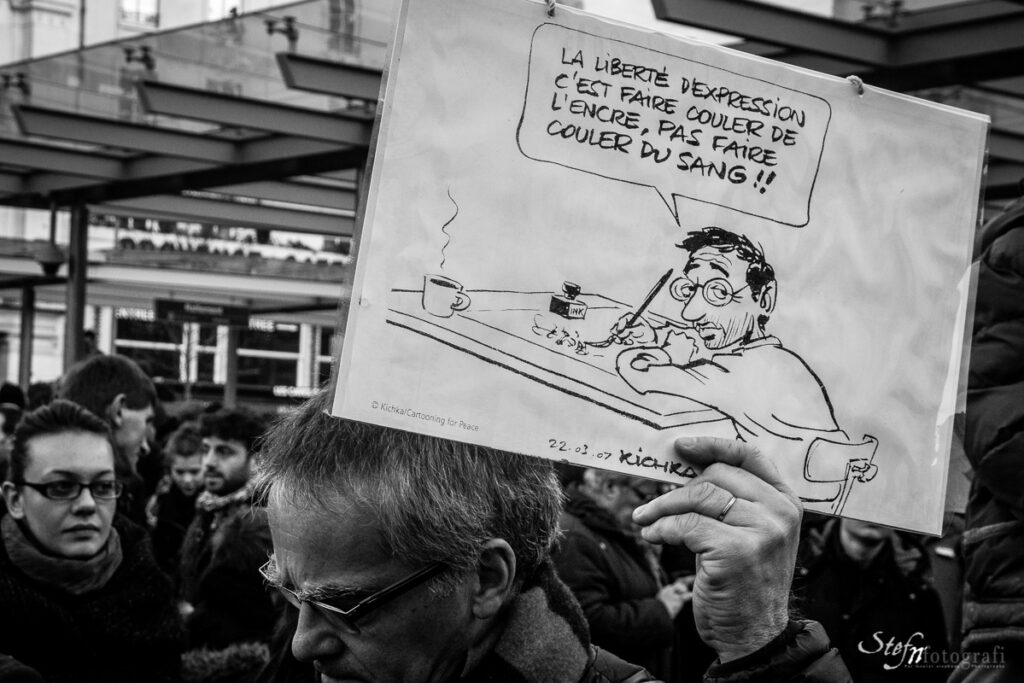 LA LIBERTÉ D'EXPRESSION
C'EST FAIRE COULER DE
L'ENCRE, PAS FAIRE
COULER DU SANG !!
INK
© Kichka/Cartooning for Peace
22.03.07 KICHKA
Stefnfotografi